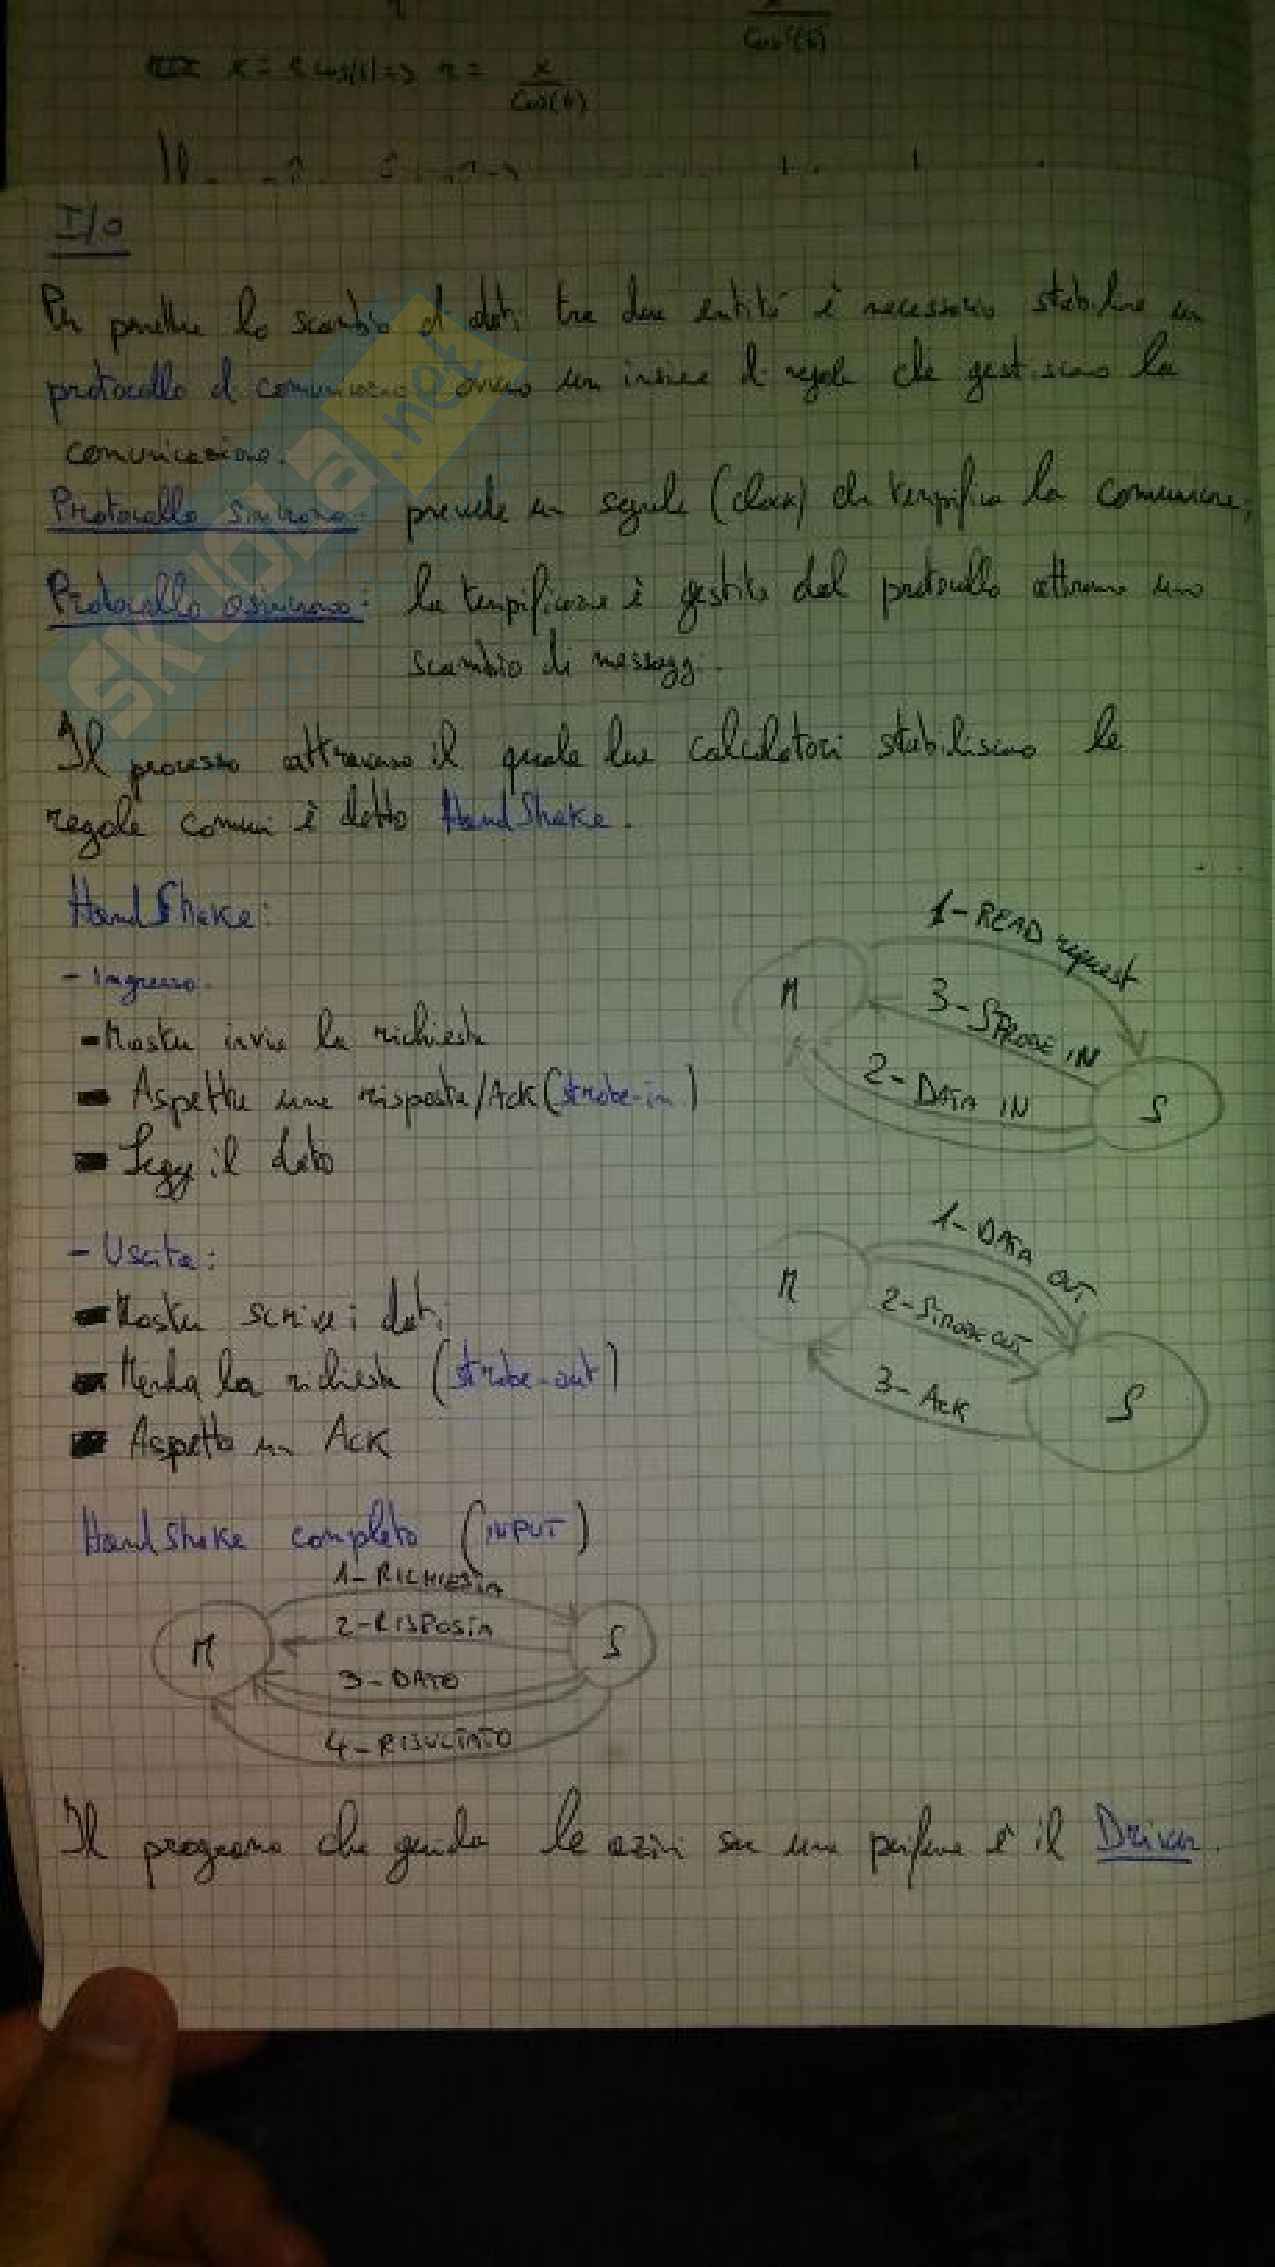 x
cos²(t)
x = r cos(t) => r = x
cos(t)
I/O
Per permettere lo scambio di dati tra due entità è necessario stabilire un
protocollo di comunicazione ovvero un insieme di regole che gestiscono la
comunicazione.
Protocollo sincrono: prevede un segnale (clock) che tempifica la comunicazione;
Protocollo asincrono: la tempificazione è gestita dal protocollo attraverso uno
scambio di messaggi.
Il processo attraverso il quale due calcolatori stabiliscono le
regole comuni è detto HandShake.
HandShake:
- Ingresso:
- Master invia la richiesta
- Aspetta una risposta/Ack (strobe-in)
- Leggi il dato
1- READ request
M
3- STROBE IN
2- DATA IN
S
- Uscita:
- Master scrive i dati
- Manda la richiesta (strobe-out)
- Aspetto un Ack
1- DATA OUT
M
2- STROBE OUT
3- Ack
S
HandShake completo (INPUT)
1- RICHIESTA
M
2- RISPOSTA
S
3- DATO
4- RISULTATO
Il programma che guida le azioni su una periferica è il Driver.
SKUOLA.net